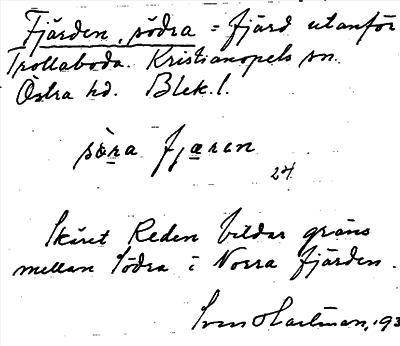 Fjärden, södra = fjärd utanför
Trollaboda. Kristianopels sn.
Östra hd. Blek.l.
sòra fjæran
24
Skäret Reden bildar gräns
mellan Södra i Norra fjärden.
Sven O Hartman, 193